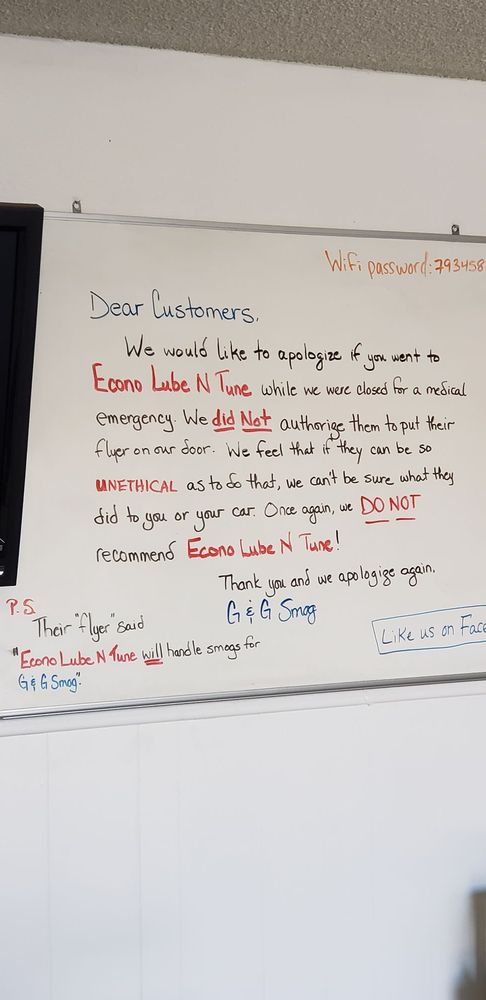 WiFi password: 793458
Dear Customers,
We would like to apologize if you went to
Econo Lube N Tune while we were closed for a medical
emergency. We did Not authorize them to put their
flyer on our door. We feel that if they can be so
UNETHICAL as to do that, we can't be sure what they
did to you or your car. Once again, we DO NOT
recommend Econo Lube N Tune!
Thank you and we apologize again.
G & G Smog
P.S.
Their "flyer" said
"Econo Lube N Tune will handle smogs for
G & G Smog".
Like us on Face